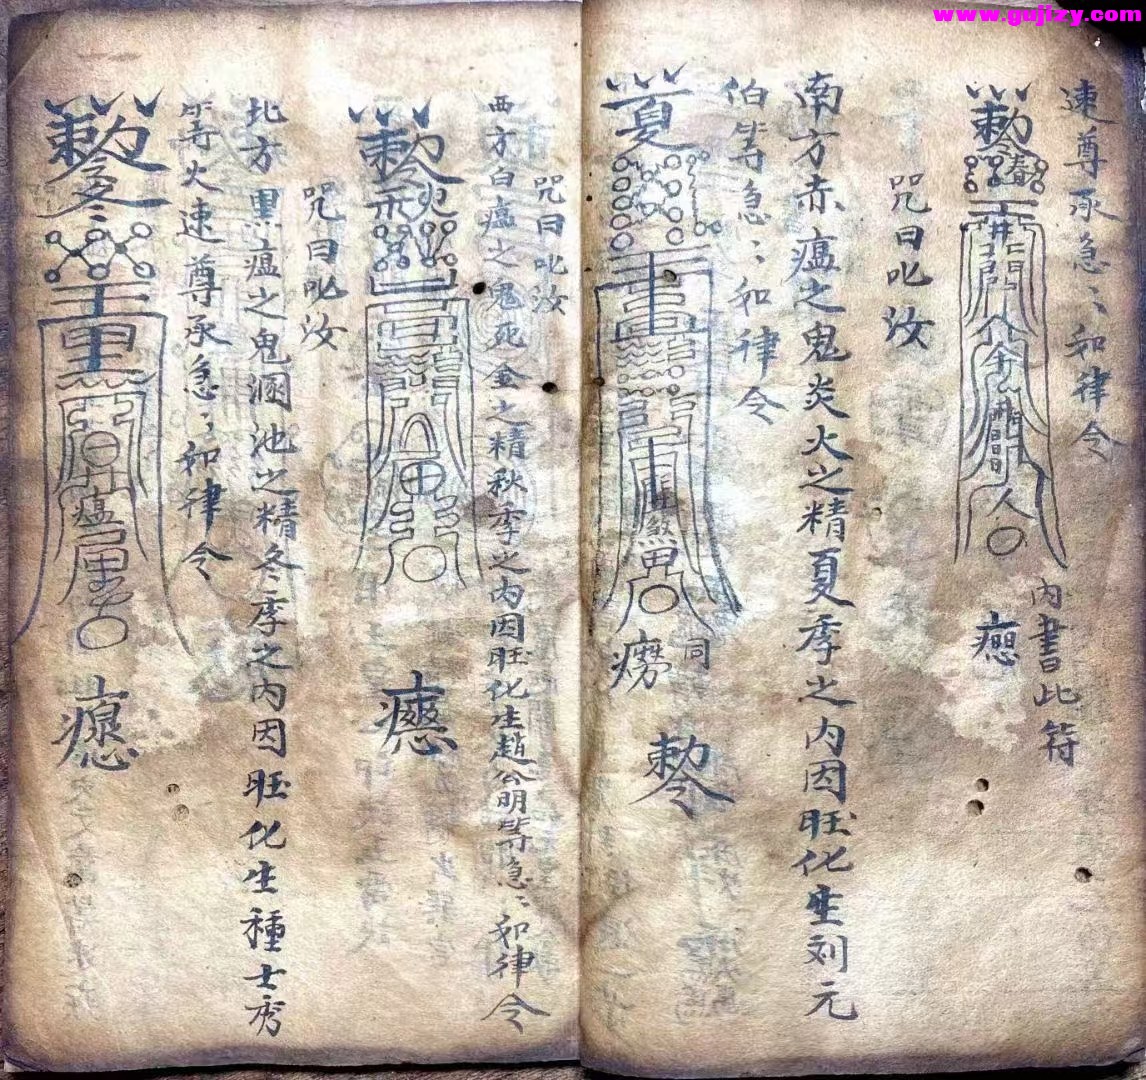 www.gujizy.com
速尊承急〻和律令
内書此符
勅令
春
開
人
咒曰叱汝
南方赤瘟之鬼炎火之精夏季之内因旺化生刘元
伯等急〻和律令
夏
煞
同
勅令
咒曰叱汝
西方白瘟之鬼死金之精秋季之内因旺化生趙公明等急〻和律令
勅令
咒曰叱汝
北方黑瘟之鬼溷池之精冬季之内因旺化生種士秀
等火速尊承急〻和律令
勅
冬
瘟